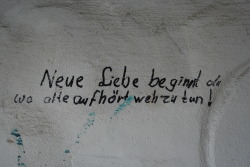 Neue Liebe beginnt da
wo alte aufhört weh zu tun!